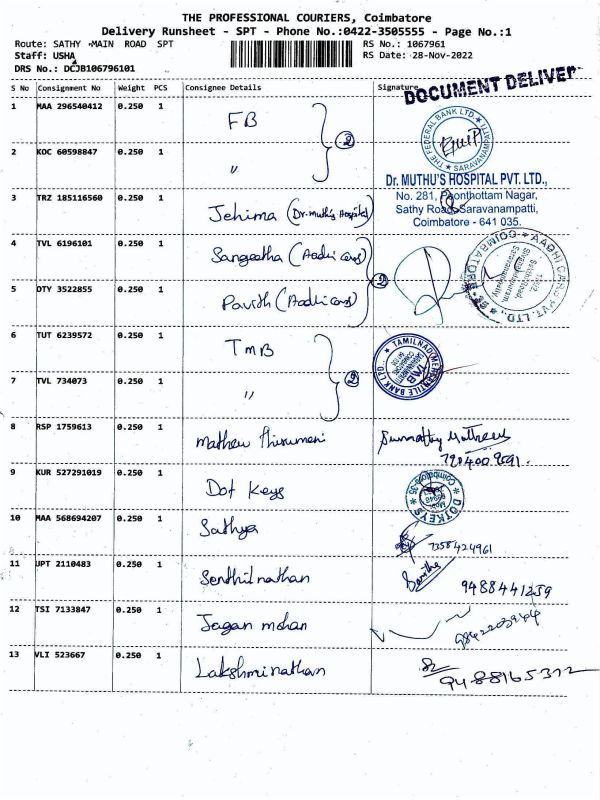 THE PROFESSIONAL COURIERS, Coimbatore
Delivery Runsheet - SPT - Phone No.:0422-3505555 - Page No.:1
Route: SATHY MAIN ROAD SPT
RS No.: 1067961
Staff: USHA
RS Date: 28-Nov-2022
DRS No.: DCJB106796101
DOCUMENT DELIVER
S No Consignment No Weight PCS Consignee Details Signature
1 MAA 296540412 0.250 1 FB
THE FEDERAL BANK LTD. SARAVANAMPATTI
2 KOC 60598847 0.250 1 "
2
Dr. MUTHU'S HOSPITAL PVT. LTD.,
No. 281, Poonthottam Nagar,
Sathy Road, Saravanampatti,
Coimbatore - 641 035.
3 TRZ 185116560 0.250 1 Jehima (Dr. muthu's Hospital)
4 TVL 6196101 0.250 1 Sangeetha (Aadhi cars)
AADHI CARS PVT. LTD. COIMBATORE - 35
5 DTY 3522855 0.250 1 Pavith (Aadhi cars)
2
6 TUT 6239572 0.250 1 TMB
TAMILNAD MERCANTILE BANK LTD.
TMB
7 TVL 734073 0.250 1 "
2
8 RSP 1759613 0.250 1 Mathew Thirumeni
9 KUR 527291019 0.250 1 Dot Keys
DOTKEYS Coimbatore-35
10 MAA 568694207 0.250 1 Sathya
7358424961
11 JPT 2110483 0.250 1 Senthilnathan
9488441259
12 TSI 7133847 0.250 1 Jagan mohan
13 VLI 523667 0.250 1 Lakshminathan
9488165372